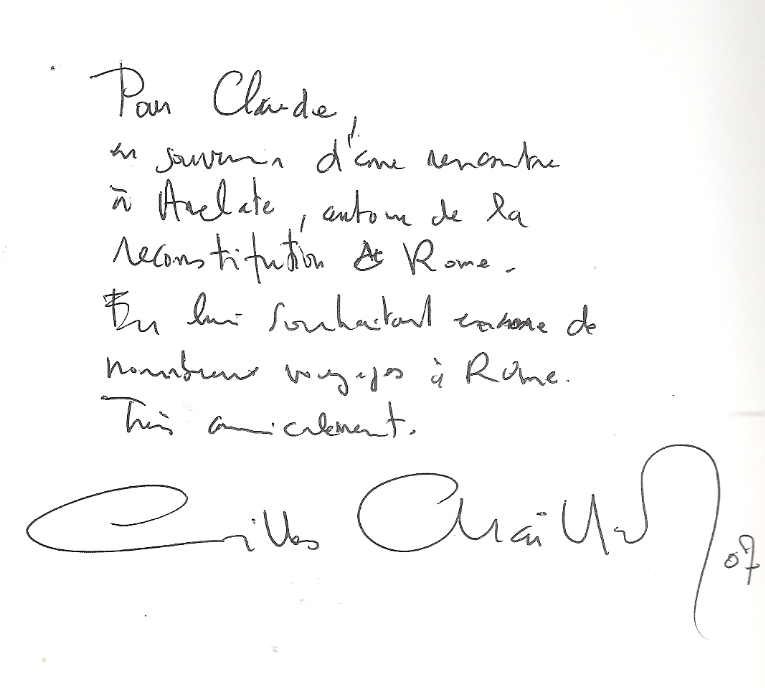 Pour Claude,
en souvenir d'une rencontre
à Arelate, autour de la
reconstitution de Rome.
En lui souhaitant encore de
nombreux voyages à Rome.
Très amicalement.
Gilles Chaillet
07